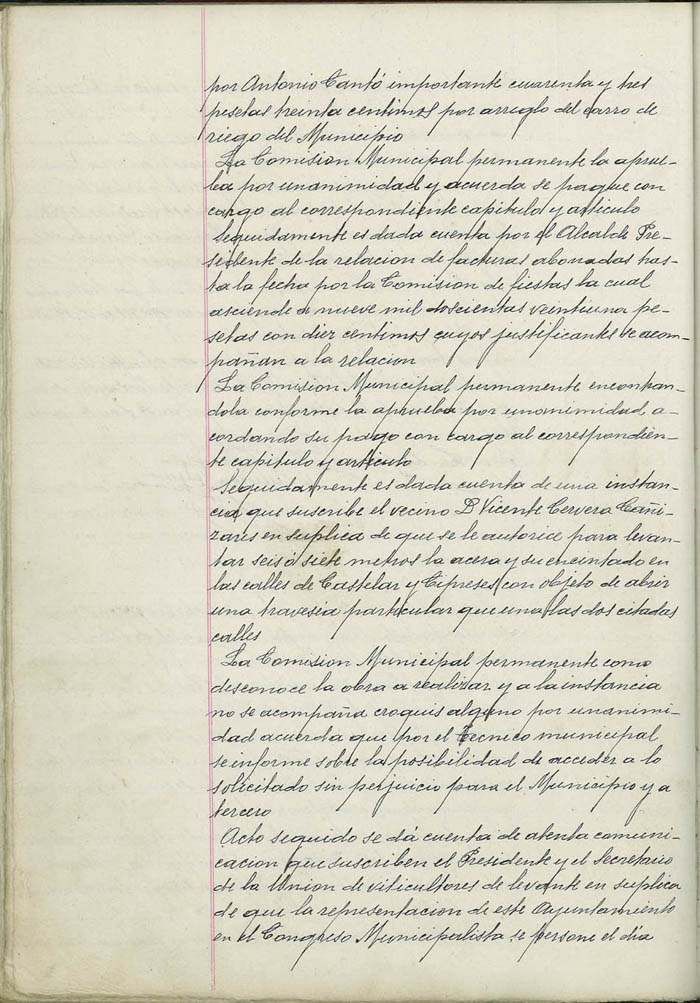 por Antonio Cantó importante cuarenta y tres
pesetas treinta centimos por arreglo del carro de
riego del Municipio
La Comision Municipal permanente la aprue-
ba por unanimidad y acuerda se pague con
cargo al correspondiente capitulo y articulo
Seguidamente es dada cuenta por el Alcalde Pre-
sidente de la relacion de facturas abonadas has-
ta la fecha por la Comision de fiestas la cual
asciende a nueve mil doscientas veintiuna pe-
setas con diez centimos cuyos justificantes se acom-
pañan a la relacion
La Comision Municipal permanente encontran-
dola conforme la aprueba por unanimidad a-
cordando su pago con cargo al correspondien-
te capitulo y articulo
Seguidamente es dada cuenta de una instan-
cia que suscribe el vecino D Vicente Cervera Cañi-
zares en suplica de que se le autorice para levan-
tar seis ó siete metros la acera y su encintado en
las calles de Castelar y Cipreses con objeto de abrir
una travesia particular que una las dos citadas
calles
La Comision Municipal permanente como
desconoce la obra a realizar y a la instancia
no se acompaña croquis alguno por unanimi-
dad acuerda que por el Tecnico municipal
se informe sobre la posibilidad de acceder a lo
solicitado sin perjuicio para el Municipio y a
tercero
Acto seguido se dá cuenta de atenta comuni-
cacion que suscriben el Presidente y el Secretario
de la Union de viticultores de levante en suplica
de que la representacion de este Ayuntamiento
en el Congreso Municipalista se persone el dia